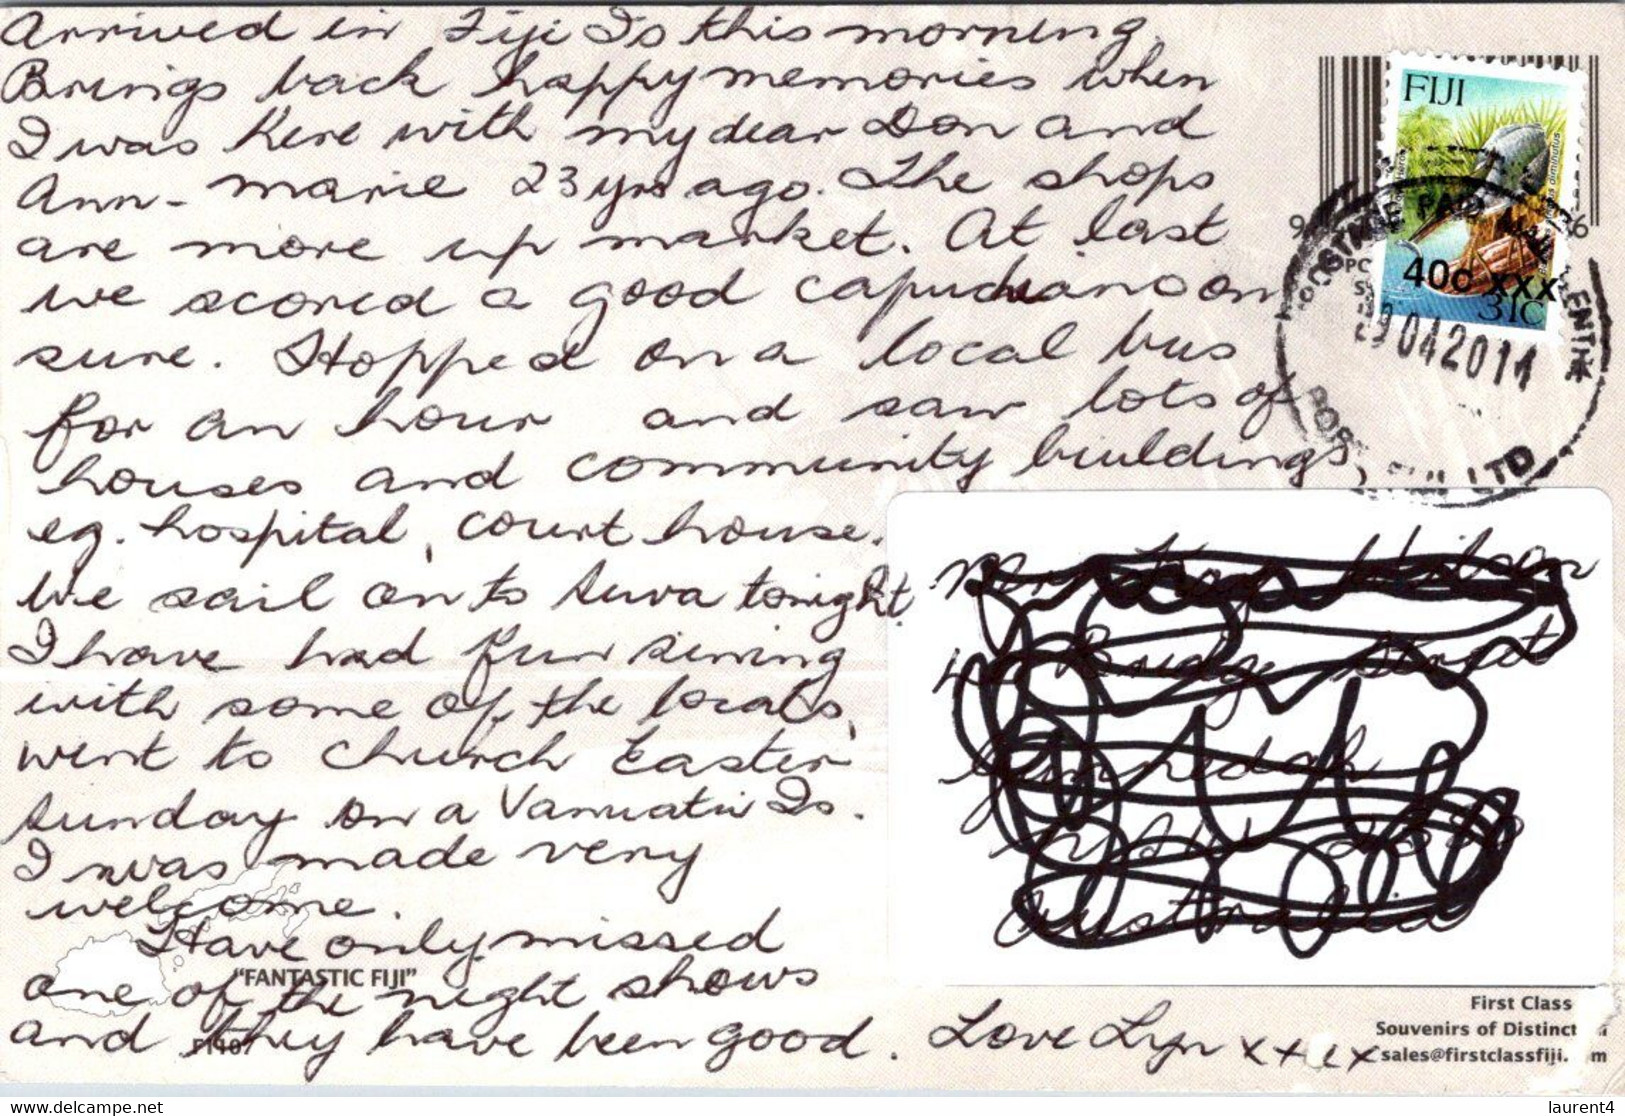 Arrived in Fiji Is this morning.
Brings back happy memories when
I was here with my dear Don and
Ann-marie 23 yrs ago. The shops
are more up market. At last
we scored a good capuchiano on
sure. Hopped on a local bus
for an hour and saw lots of
houses and community buildings,
eg. hospital, court house.
We sail on to Suva tonight.
I have had fun sining
with some of the locals,
went to church Easter
Sunday on a Vanuatu Is.
I was made very
welcome.
Have only missed
one of the night shows
and they have been good.
"FANTASTIC FIJI"
FIJI
40c XXX
31C
POSTAGE PAID
29 04 2014
POST FIJI LTD
Australia
Love Lyn xxxx
First Class
Souvenirs of Distinct
sales@firstclassfiji. m
www.delcampe.net
laurent4